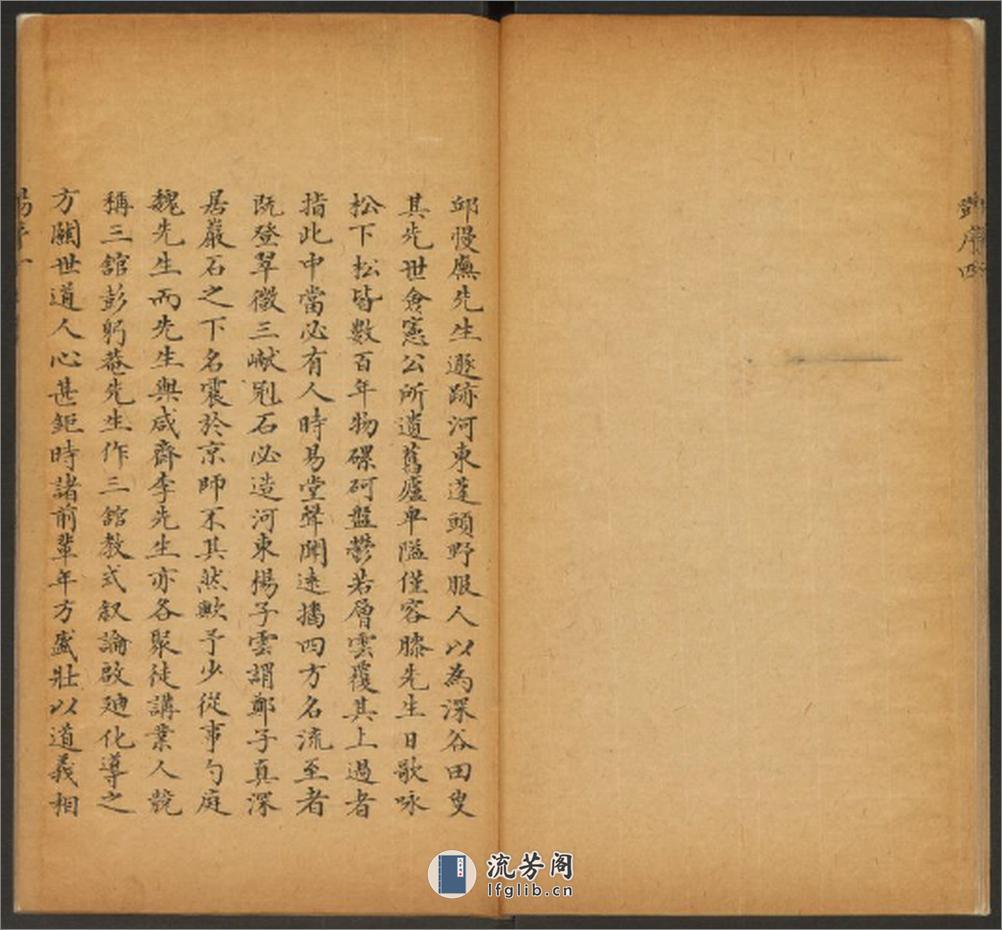 邱慢廡先生遯跡河東蓬頭野服人以為深谷田叟
其先世僉憲公所遺舊廬卑隘僅容膝先生日歌咏
松下松皆數百年物磥砢盤鬱若層雲覆其上過者
指此中當必有人時易堂聲聞遠播四方名流至者
既登翠微三巘冠石必造河東揚子雲謂鄭子真深
居巖石之下名震於京師不其然歟予少從事勺庭
魏先生而先生與咸齊李先生亦各聚徒講業人競
稱三館彭躬菴先生作三館教式叙論啟廸化導之
方關世道人心甚鉅時諸前輩年方盛壯以道義相
流芳阁
lfglib.cn